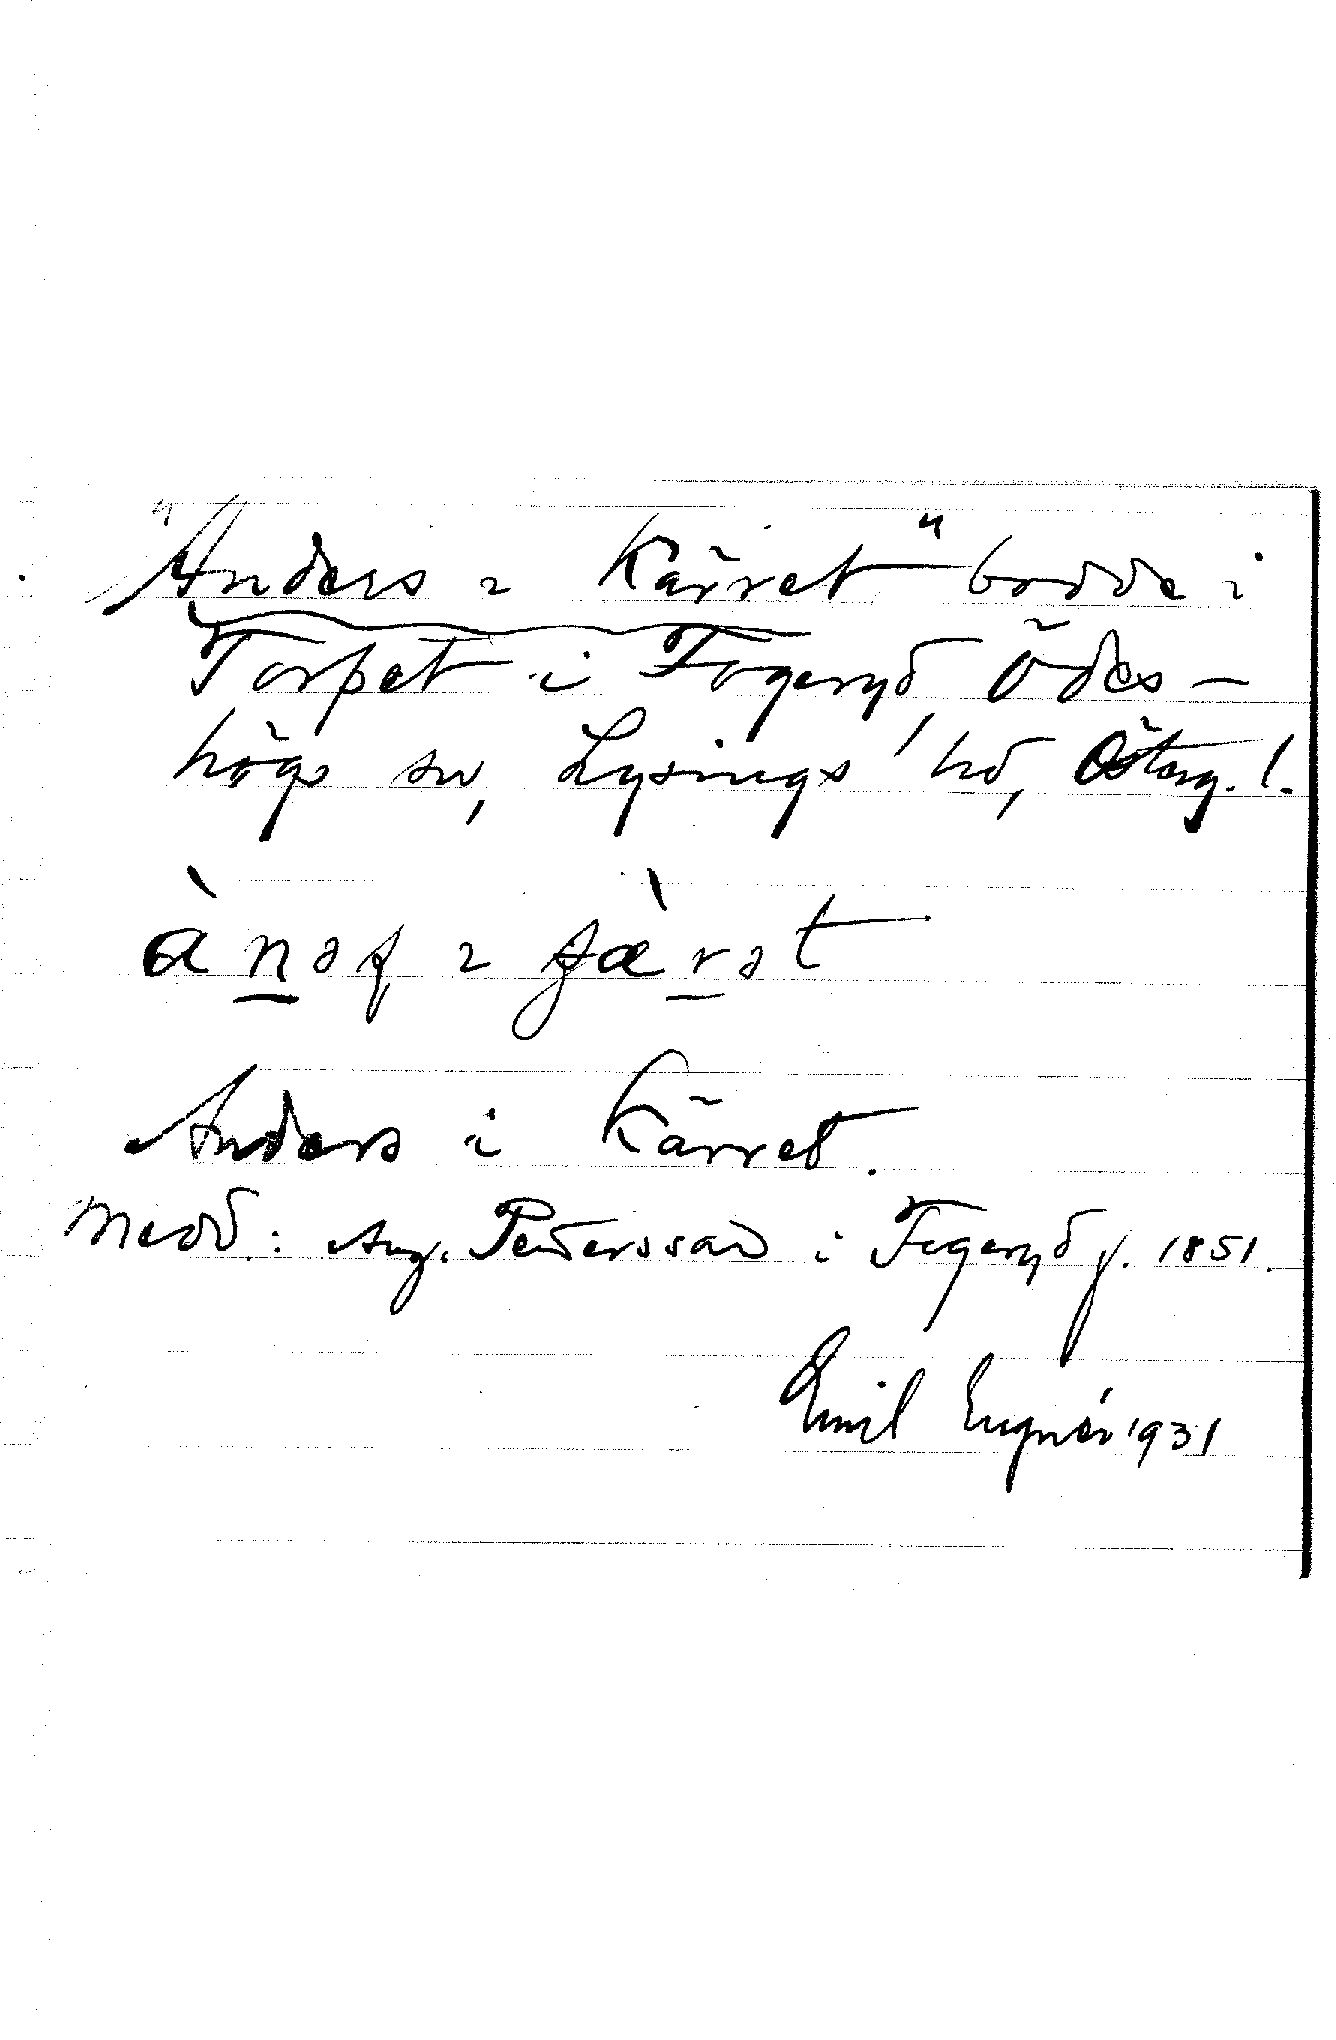 "Anders i Kärret" bodde i
Torpet i Fogeryd, Ödes-
högs sn, Lysings hd, Österg. l.
Anders i Kärret.
Medd.: Aug. Petersson i Fogeryd f. 1851.
Emil Eugnér 1931